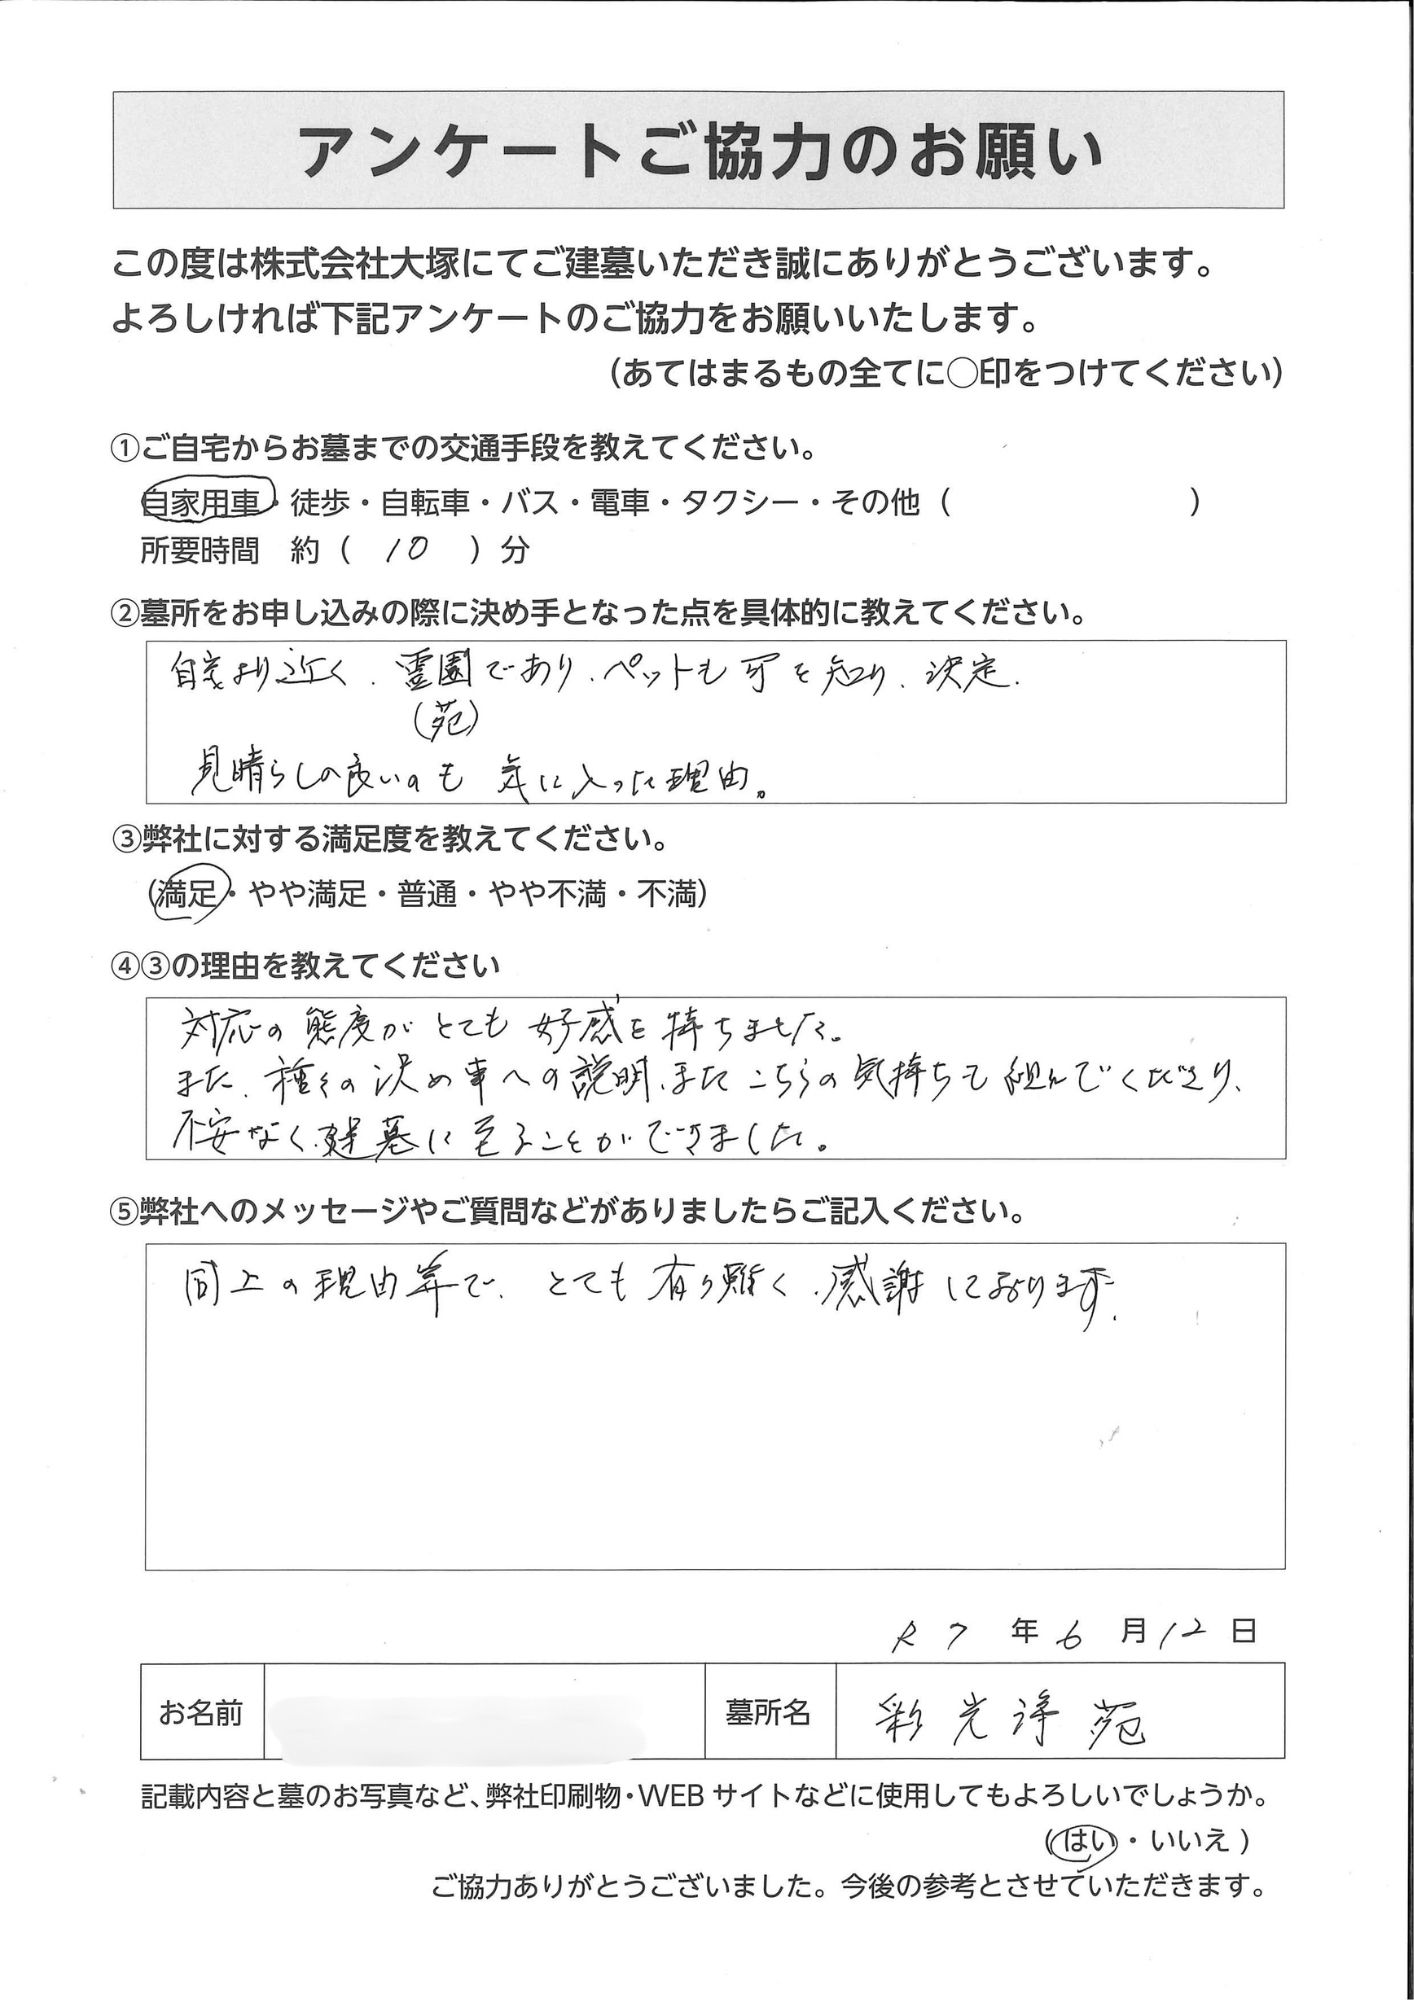 アンケートご協力のお願い
この度は株式会社大塚にてご建墓いただき誠にありがとうございます。
よろしければ下記アンケートのご協力をお願いいたします。
（あてはまるもの全てに○印をつけてください）
①ご自宅からお墓までの交通手段を教えてください。
自家用車・徒歩・自転車・バス・電車・タクシー・その他（　　　　　　　　）
所要時間　約（　10　）分
②墓所をお申し込みの際に決め手となった点を具体的に教えてください。
自宅より近く、霊園であり、ペットも可を知り、決定.
（苑）
見晴らしの良いのも気に入った理由。
③弊社に対する満足度を教えてください。
（満足・やや満足・普通・やや不満・不満）
④③の理由を教えてください
対応の態度がとても好感を持ちました。
また、種々の決め事への説明、またこちらの気持ちも組んでくださり、
不安なく、建墓に至ることができました。
⑤弊社へのメッセージやご質問などがありましたらご記入ください。
同上の理由等で、とても有り難く、感謝しております.
R7 年 6 月 12 日
お名前　墓所名　彩光浄苑
記載内容と墓のお写真など、弊社印刷物・WEB サイトなどに使用してもよろしいでしょうか。
（はい・いいえ）
ご協力ありがとうございました。今後の参考とさせていただきます。